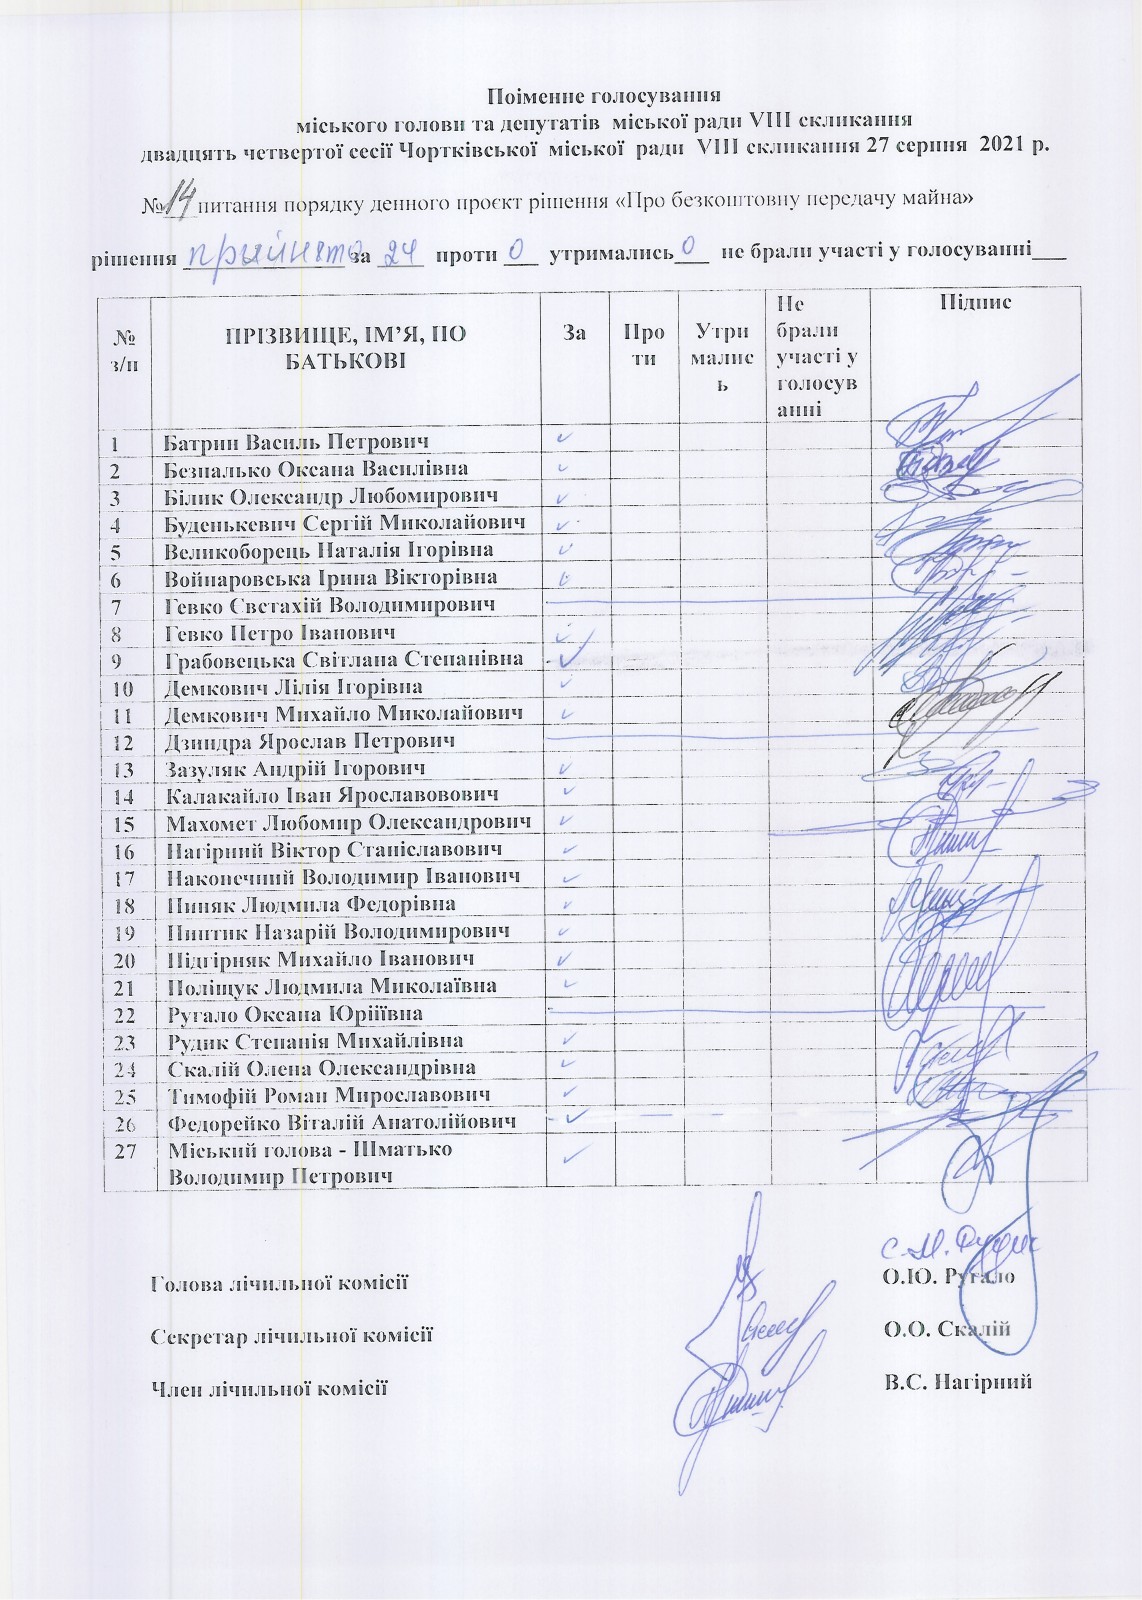 Поіменне голосування
міського голови та депутатів міської ради VIII скликання
двадцять четвертої сесії Чортківської міської ради VIII скликання 27 серпня 2021 р.
№ 14 питання порядку денного проєкт рішення «Про безкоштовну передачу майна»
рішення прийнято за 24 проти 0 утримались 0 не брали участі у голосуванні___
№ з/п ПРІЗВИЩЕ, ІМ’Я, ПО БАТЬКОВІ За Про ти Утри малис ь Не брали участі у голосув анні Підпис
1 Батрин Василь Петрович ✓
2 Безпалько Оксана Василівна ✓
3 Білик Олександр Любомирович ✓
4 Буденькевич Сергій Миколайович ✓
5 Великоборець Наталія Ігорівна ✓
6 Войнаровська Ірина Вікторівна ✓
7 Гевко Євстахій Володимирович
8 Гевко Петро Іванович ✓
9 Грабовецька Світлана Степанівна ✓
10 Демкович Лілія Ігорівна ✓
11 Демкович Михайло Миколайович ✓
12 Дзиндра Ярослав Петрович
13 Зазуляк Андрій Ігорович ✓
14 Калакайло Іван Ярославовович ✓
15 Махомет Любомир Олександрович ✓
16 Нагірний Віктор Станіславович ✓
17 Наконечний Володимир Іванович ✓
18 Пиняк Людмила Федорівна ✓
19 Пиптик Назарій Володимирович ✓
20 Підгірняк Михайло Іванович ✓
21 Поліщук Людмила Миколаївна ✓
22 Ругало Оксана Юріївна
23 Рудик Степанія Михайлівна ✓
24 Скалій Олена Олександрівна ✓
25 Тимофій Роман Мирославович ✓
26 Федорейко Віталій Анатолійович ✓
27 Міський голова - Шматько ✓
Володимир Петрович
С.М. Рудик
Голова лічильної комісії О.Ю. Ругало
Секретар лічильної комісії О.О. Скалій
Член лічильної комісії В.С. Нагірний